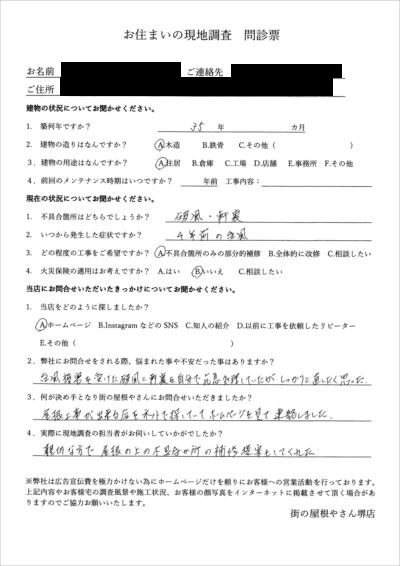 お住まいの現地調査　問診票
お名前　ご連絡先
ご住所
建物の状況についてお聞かせください。
1．築何年ですか？　35　年　カ月
2．建物の造りはなんですか？　A.木造　B.鉄骨　C.その他（　　）
3．建物の用途はなんですか？　A.住居　B.倉庫　C.工場　D.店舗　E.事務所　F.その他
4．前回のメンテナンス時期はいつですか？　年前　工事内容：
現在の状況についてお聞かせください。
1．不具合箇所はどちらでしょうか？　破風・軒裏
2．いつから発生した症状ですか？　4年前の台風
3．どの程度の工事をご希望ですか？　A.不具合箇所のみの部分的補修　B.全体的に改修　C.相談したい
4．火災保険の適用はお考えですか？　A.はい　B.いいえ　C.相談したい
当店にお問合せいただいたきっかけについてお聞かせください。
1．当店をどのように探しましたか？
A.ホームページ　B.InstagramなどのSNS　C.知人の紹介　D.以前に工事を依頼したリピーター
E.その他（　　）
2．弊社にお問合せをされる際、悩まれた事や不安だった事はありますか？
台風被害を受けた破風と軒裏を自分で応急処理していたが しっかりと直したく思った.
3．何が決め手となり街の屋根やさんにお問合せいただきましたか？
屋根工事が出来る店をネットで探していてホームページを見て連絡しました.
4．実際に現地調査の担当者がお伺いしていかがでしたか？
親切な方で 屋根の上の不具合か所の補修提案をしてくれた
※弊社は広告宣伝費を極力かけない為にホームページだけを頼りにお客様への営業活動を行っております。
上記内容やお客様宅の調査風景や施工状況、お客様の顔写真をインターネットに掲載させて頂く場合があり
ますのでご協力お願いいたします。
街の屋根やさん堺店